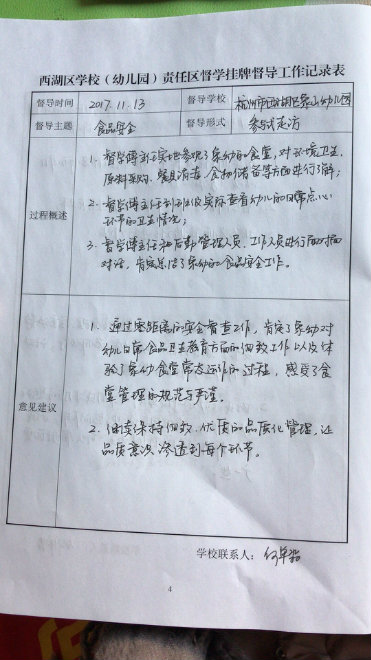 西湖区学校（幼儿园）责任区督学挂牌督导工作记录表
督导时间 2017.11.13 督导学校 杭州市西湖区象山幼儿园
督导主题 食品安全 督导形式 参与式走访
过程概述
1. 督学傅主任实地参观了象幼的食堂，对环境卫生、
原料采购、餐具消毒、食物储备等方面进行了解；
2. 督学傅主任到班级实际查看幼儿的日常点心
环节的卫生情况；
3. 督学傅主任和后勤管理人员、工作人员进行面对面
对话，肯定总结了象幼的食品安全工作。
意见建议
1. 通过零距离的安全督查工作，肯定了象幼对
幼儿日常食品卫生教育方面的细致工作以及体
验了象幼食堂常态运作的过程，感受了食
堂管理的规范与严谨。
2. 继续保持细致、优质的品质化管理，让
品质意识渗透到每个环节。
学校联系人：
4